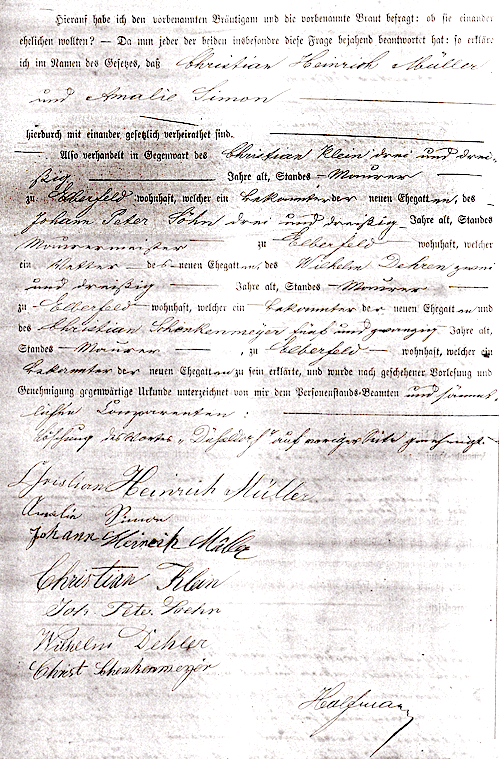 Hierauf habe ich den vorbenannten Bräutigam und die vorbenannte Braut befragt: ob sie einander
ehelichen wollten? – Da nun jeder der beiden insbesondre diese Frage bejahend beantwortet hat: so erkläre
ich im Namen des Gesetzes, daß Christian Heinrich Müller
und Amalie Simon
hierdurch mit einander gesetzlich verheirathet sind.
Also verhandelt in Gegenwart des Christian Klein drei und drei-
ßig Jahre alt, Standes Maurer
zu Elberfeld wohnhaft, welcher ein Bekannter der neuen Ehegatten, des
Johann Peter Höhn drei und dreißig Jahre alt, Standes
Maurermeister zu Elberfeld wohnhaft, welcher
ein Vetter des neuen Ehegatten, des Wilhelm Dehren zwei
und dreißig Jahre alt, Standes Maurer
zu Elberfeld wohnhaft, welcher ein Bekannter der neuen Ehegatten und
des Christian Schenkenmeyer fünf und zwanzig Jahre alt,
Standes Maurer, zu Elberfeld wohnhaft, welcher ein
Bekannter der neuen Ehegatten zu sein erklärte, und wurde nach geschehener Vorlesung und
Genehmigung gegenwärtige Urkunde unterzeichnet von mir dem Personenstands-Beamten und sämmt-
lichen Comparenten:
Löschung des Wortes auf voriger Seite genehmigt.
Christian Heinrich Müller
Amalie Simon
Johann Heinrich Müller
Christian Klein
Joh Peter Hoehn
Wilhelm Dehler
Christ Schenkenmeyer
Halfmann